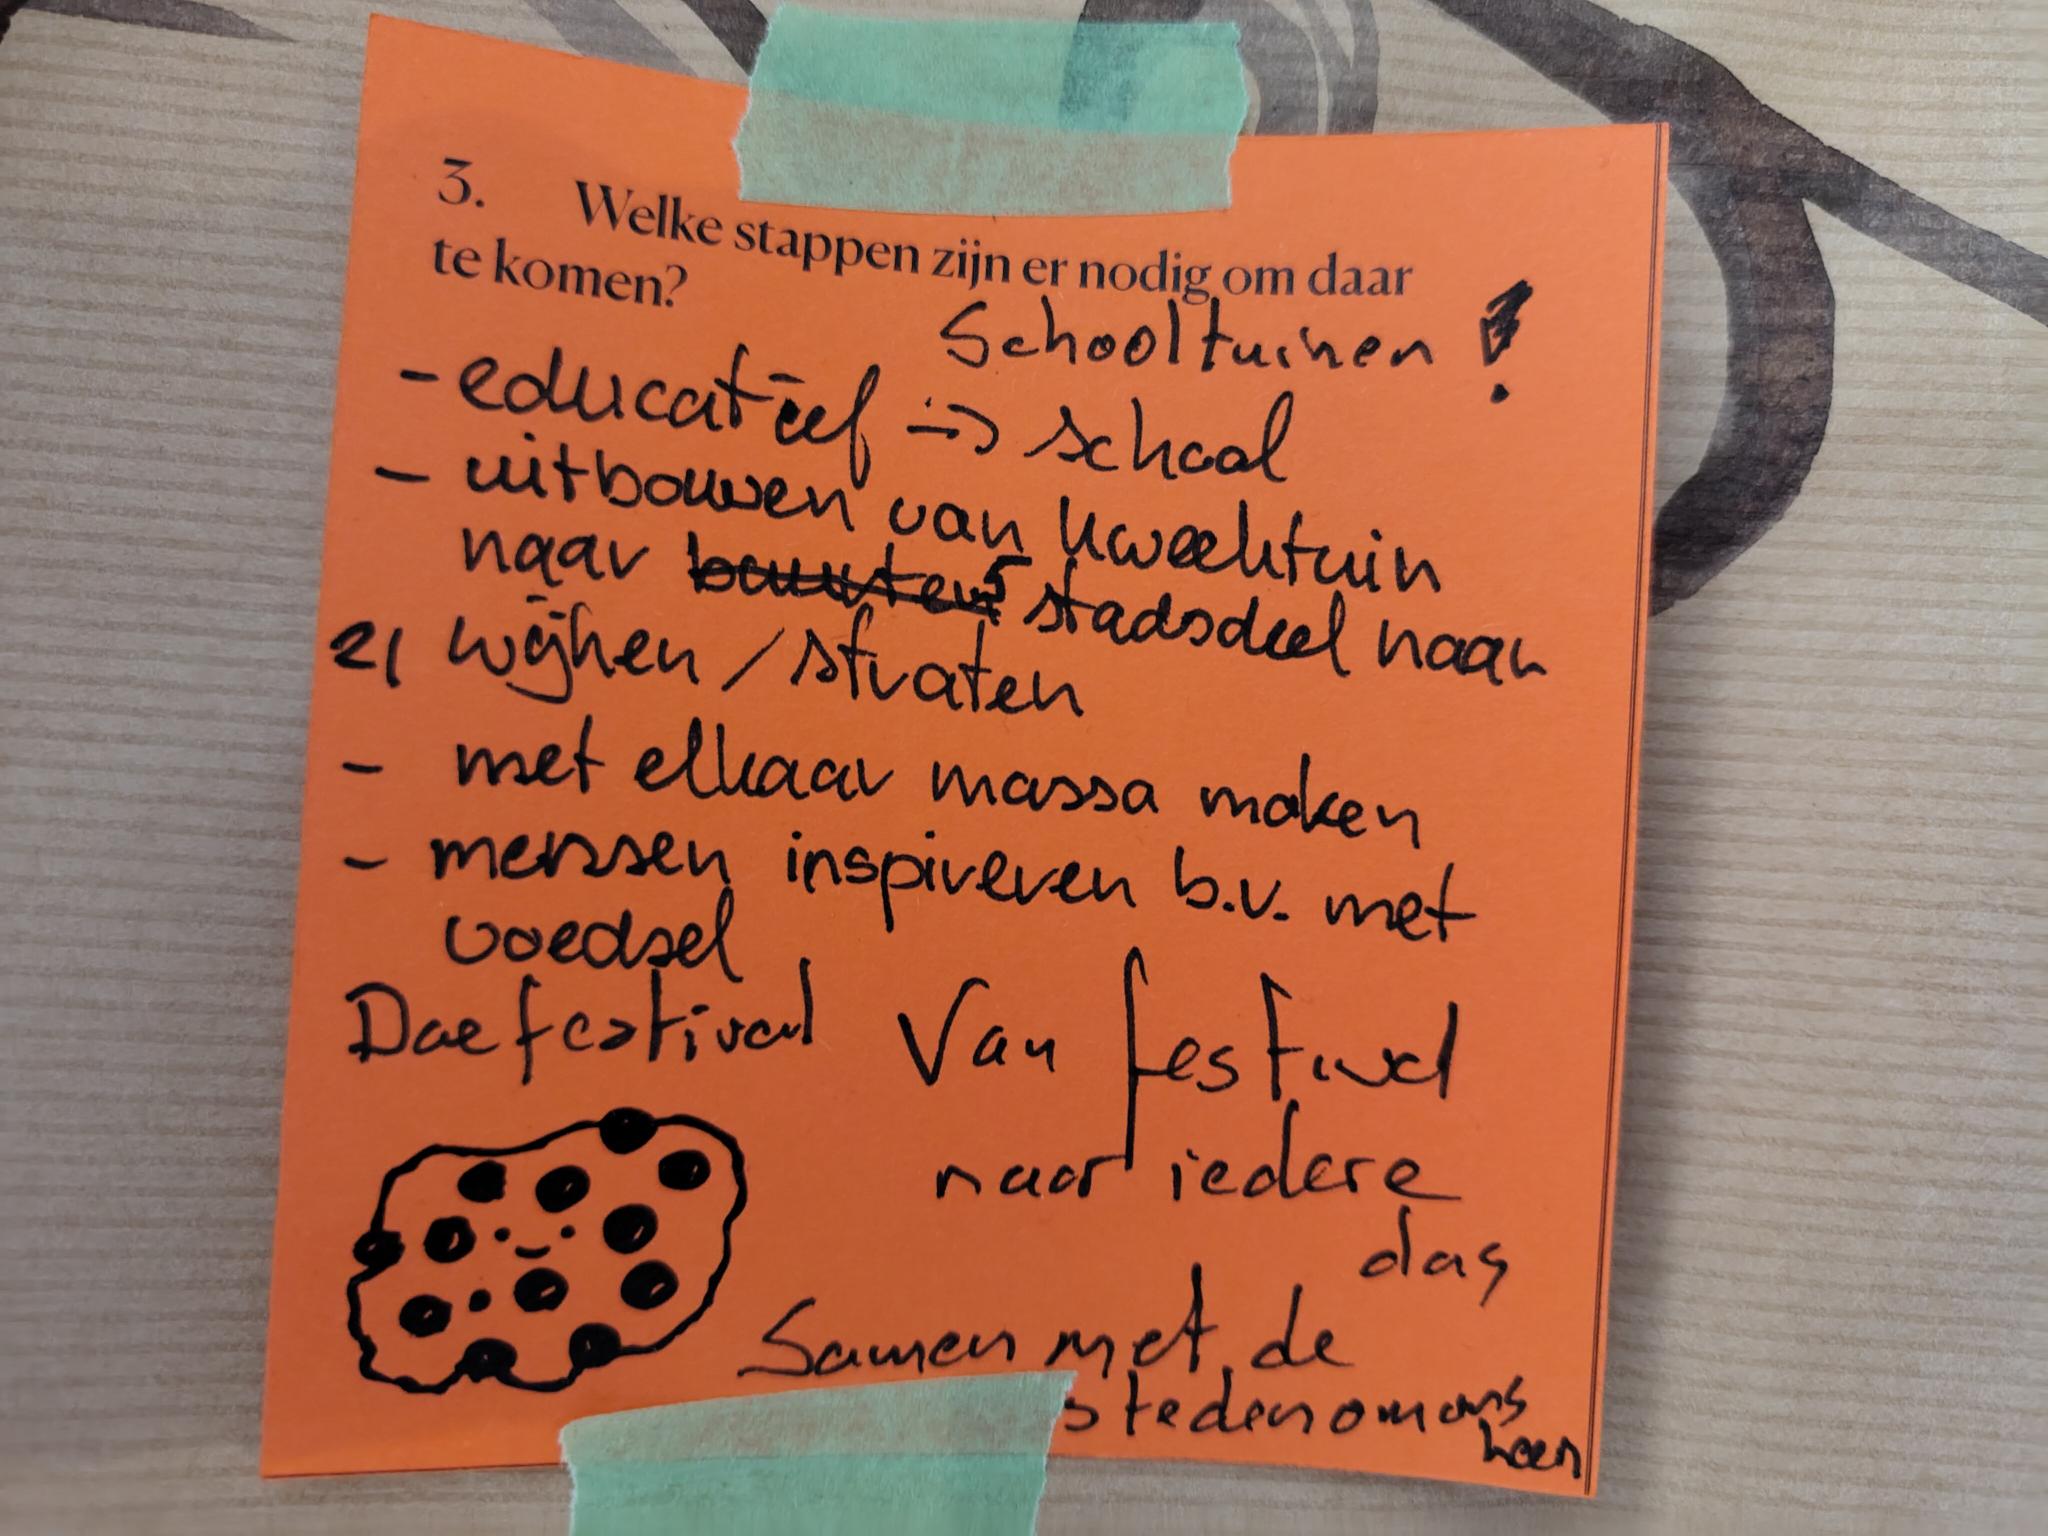 3. Welke stappen zijn er nodig om daar
te komen?
Schooltuinen !
- educatief => school
- uitbouwen van kweektuin
naar 5 stadsdeel naar
21 wijken / straten
- met elkaar massa maken
- menssen inspireren b.v. met
voedsel
Doe festival
Van festival
naar iedere
dag
Samen met de
steden om ons
heen